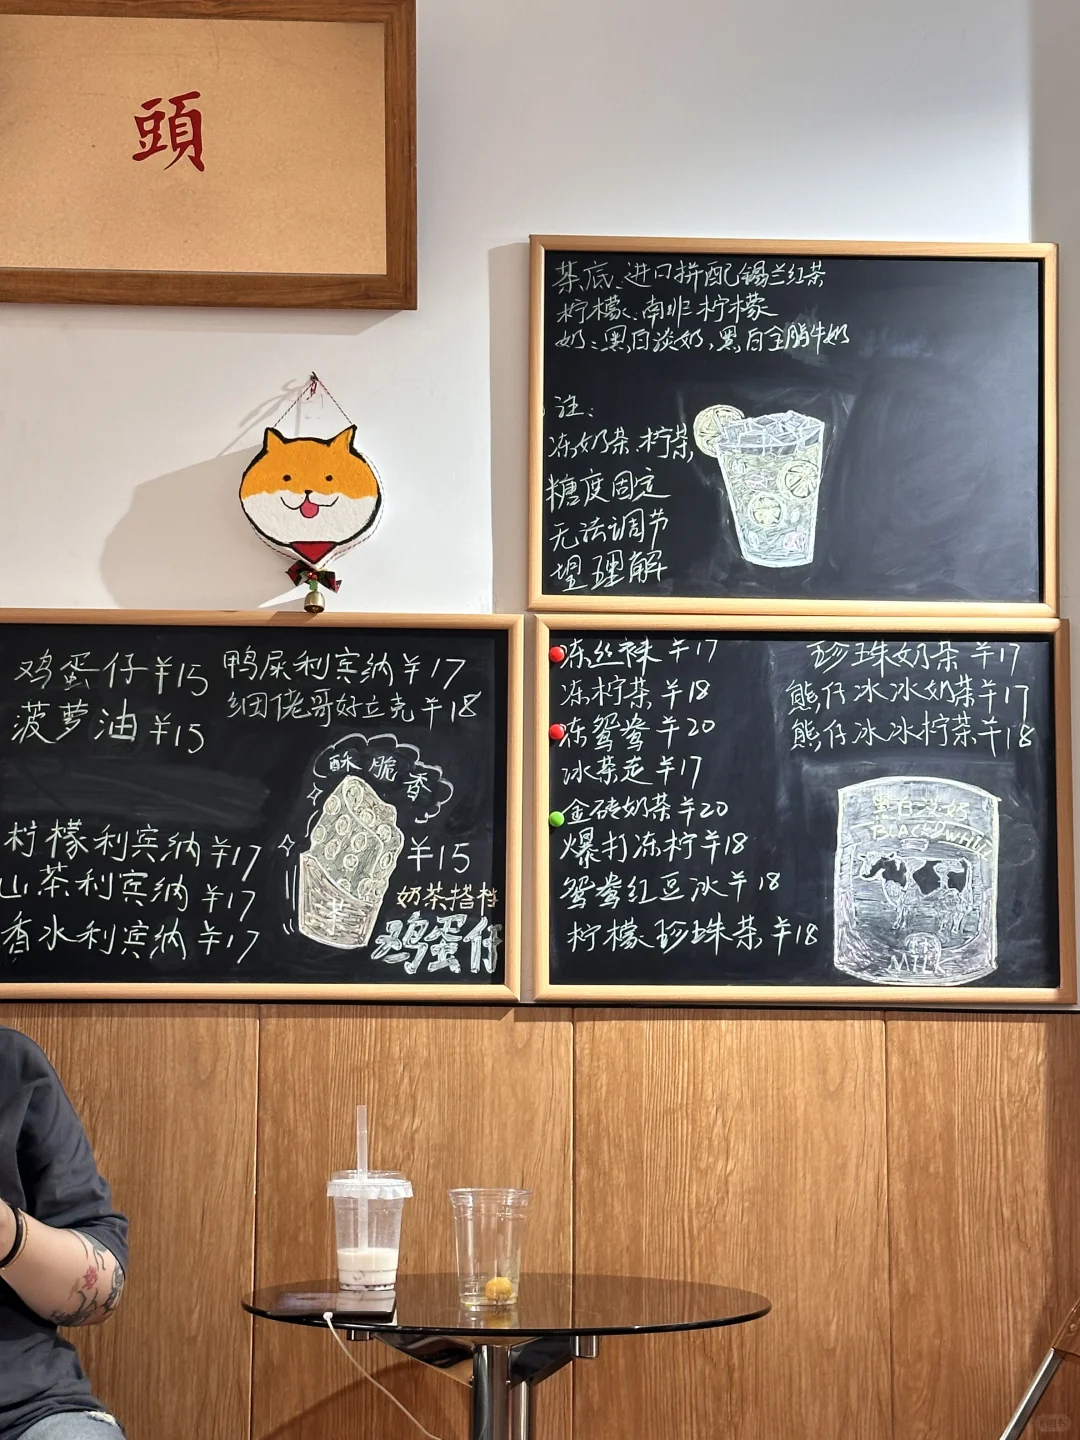 頭
茶底:进口拼配锡兰红茶
柠檬:南非柠檬
奶:黑白淡奶,黑白全脂牛奶
注:
冻奶茶.柠茶
糖度固定
无法调节
望理解
鸡蛋仔¥15
菠萝油¥15
鸭屎利宾纳¥17
细佬哥好立克¥18
柠檬利宾纳¥17
山茶利宾纳¥17
香水利宾纳¥17
酥脆香
茶
¥15
奶茶搭档
鸡蛋仔
冻丝袜¥17
冻柠茶¥18
冻鸳鸯¥20
冰茶走¥17
金砖奶茶¥20
爆打冻柠¥18
鸳鸯红豆冰¥18
柠檬珍珠茶¥18
珍珠奶茶¥17
熊仔冰冰奶茶¥17
熊仔冰冰柠茶¥18
黑白淡奶
BLACK&WHITE
MILK